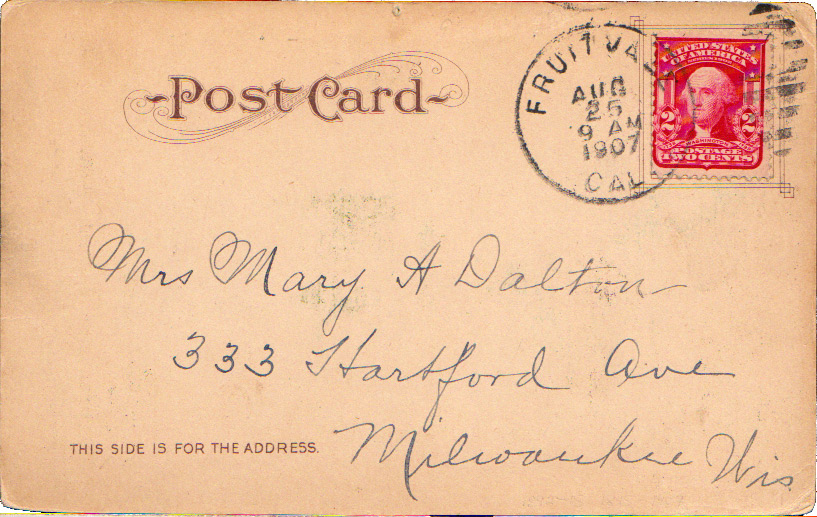 Post Card
FRUITVA
AUG
25
9 AM
1907
CAL
UNITED STATES
OF AMERICA
2 2
WASHINGTON
POSTAGE
TWO CENTS
Mrs Mary A Dalton
333 Hartford Ave
Milwaukee Wis.
THIS SIDE IS FOR THE ADDRESS.